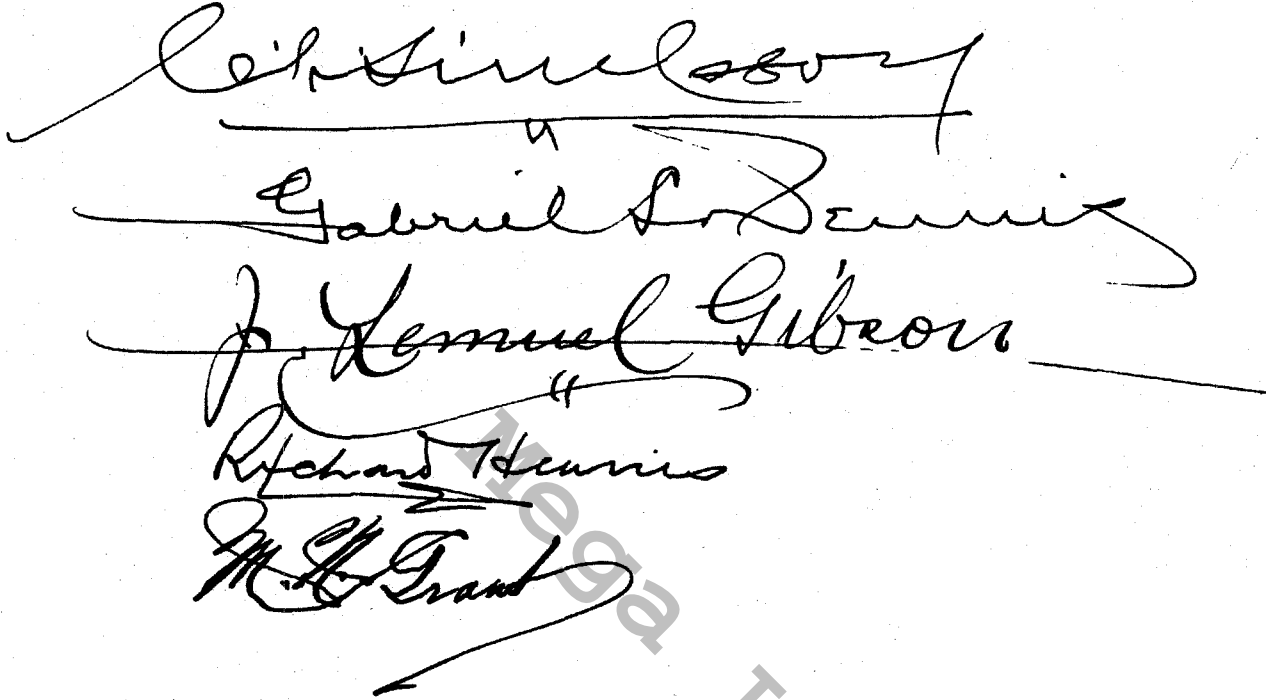 C. L. Simpson
Gabriel L. Dennis
J. Lemuel Gibson
Richard Henries
M. N. Grant
Mega